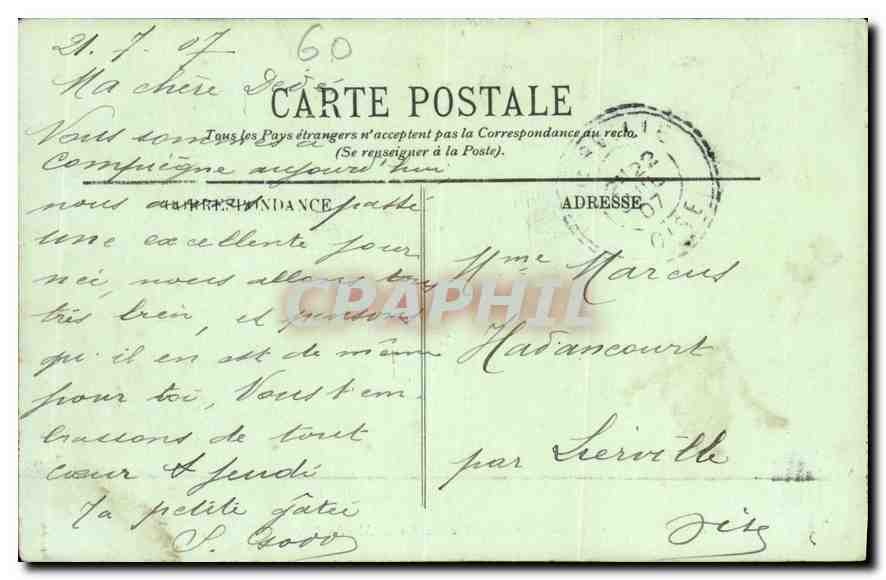 21.7.07
60
Ma chère
CARTE POSTALE
Tous les Pays étrangers n'acceptent pas la Correspondance au recto.
(Se renseigner à la Poste).
Vous sommes à
Compiègne aujourd'hui
CORRESPONDANCE
ADRESSE
nous avons passé
une excellente jour
née, nous allons tous
très bien, et pensons
qu'il en est de même
pour toi, Nous t'em
brassons de tout
cœur A Jeudi
Ta petite gâtée
S.
Mme Marcus
Hadancourt
par Liérville
Oise
22
07
OISE
CPAPHIL